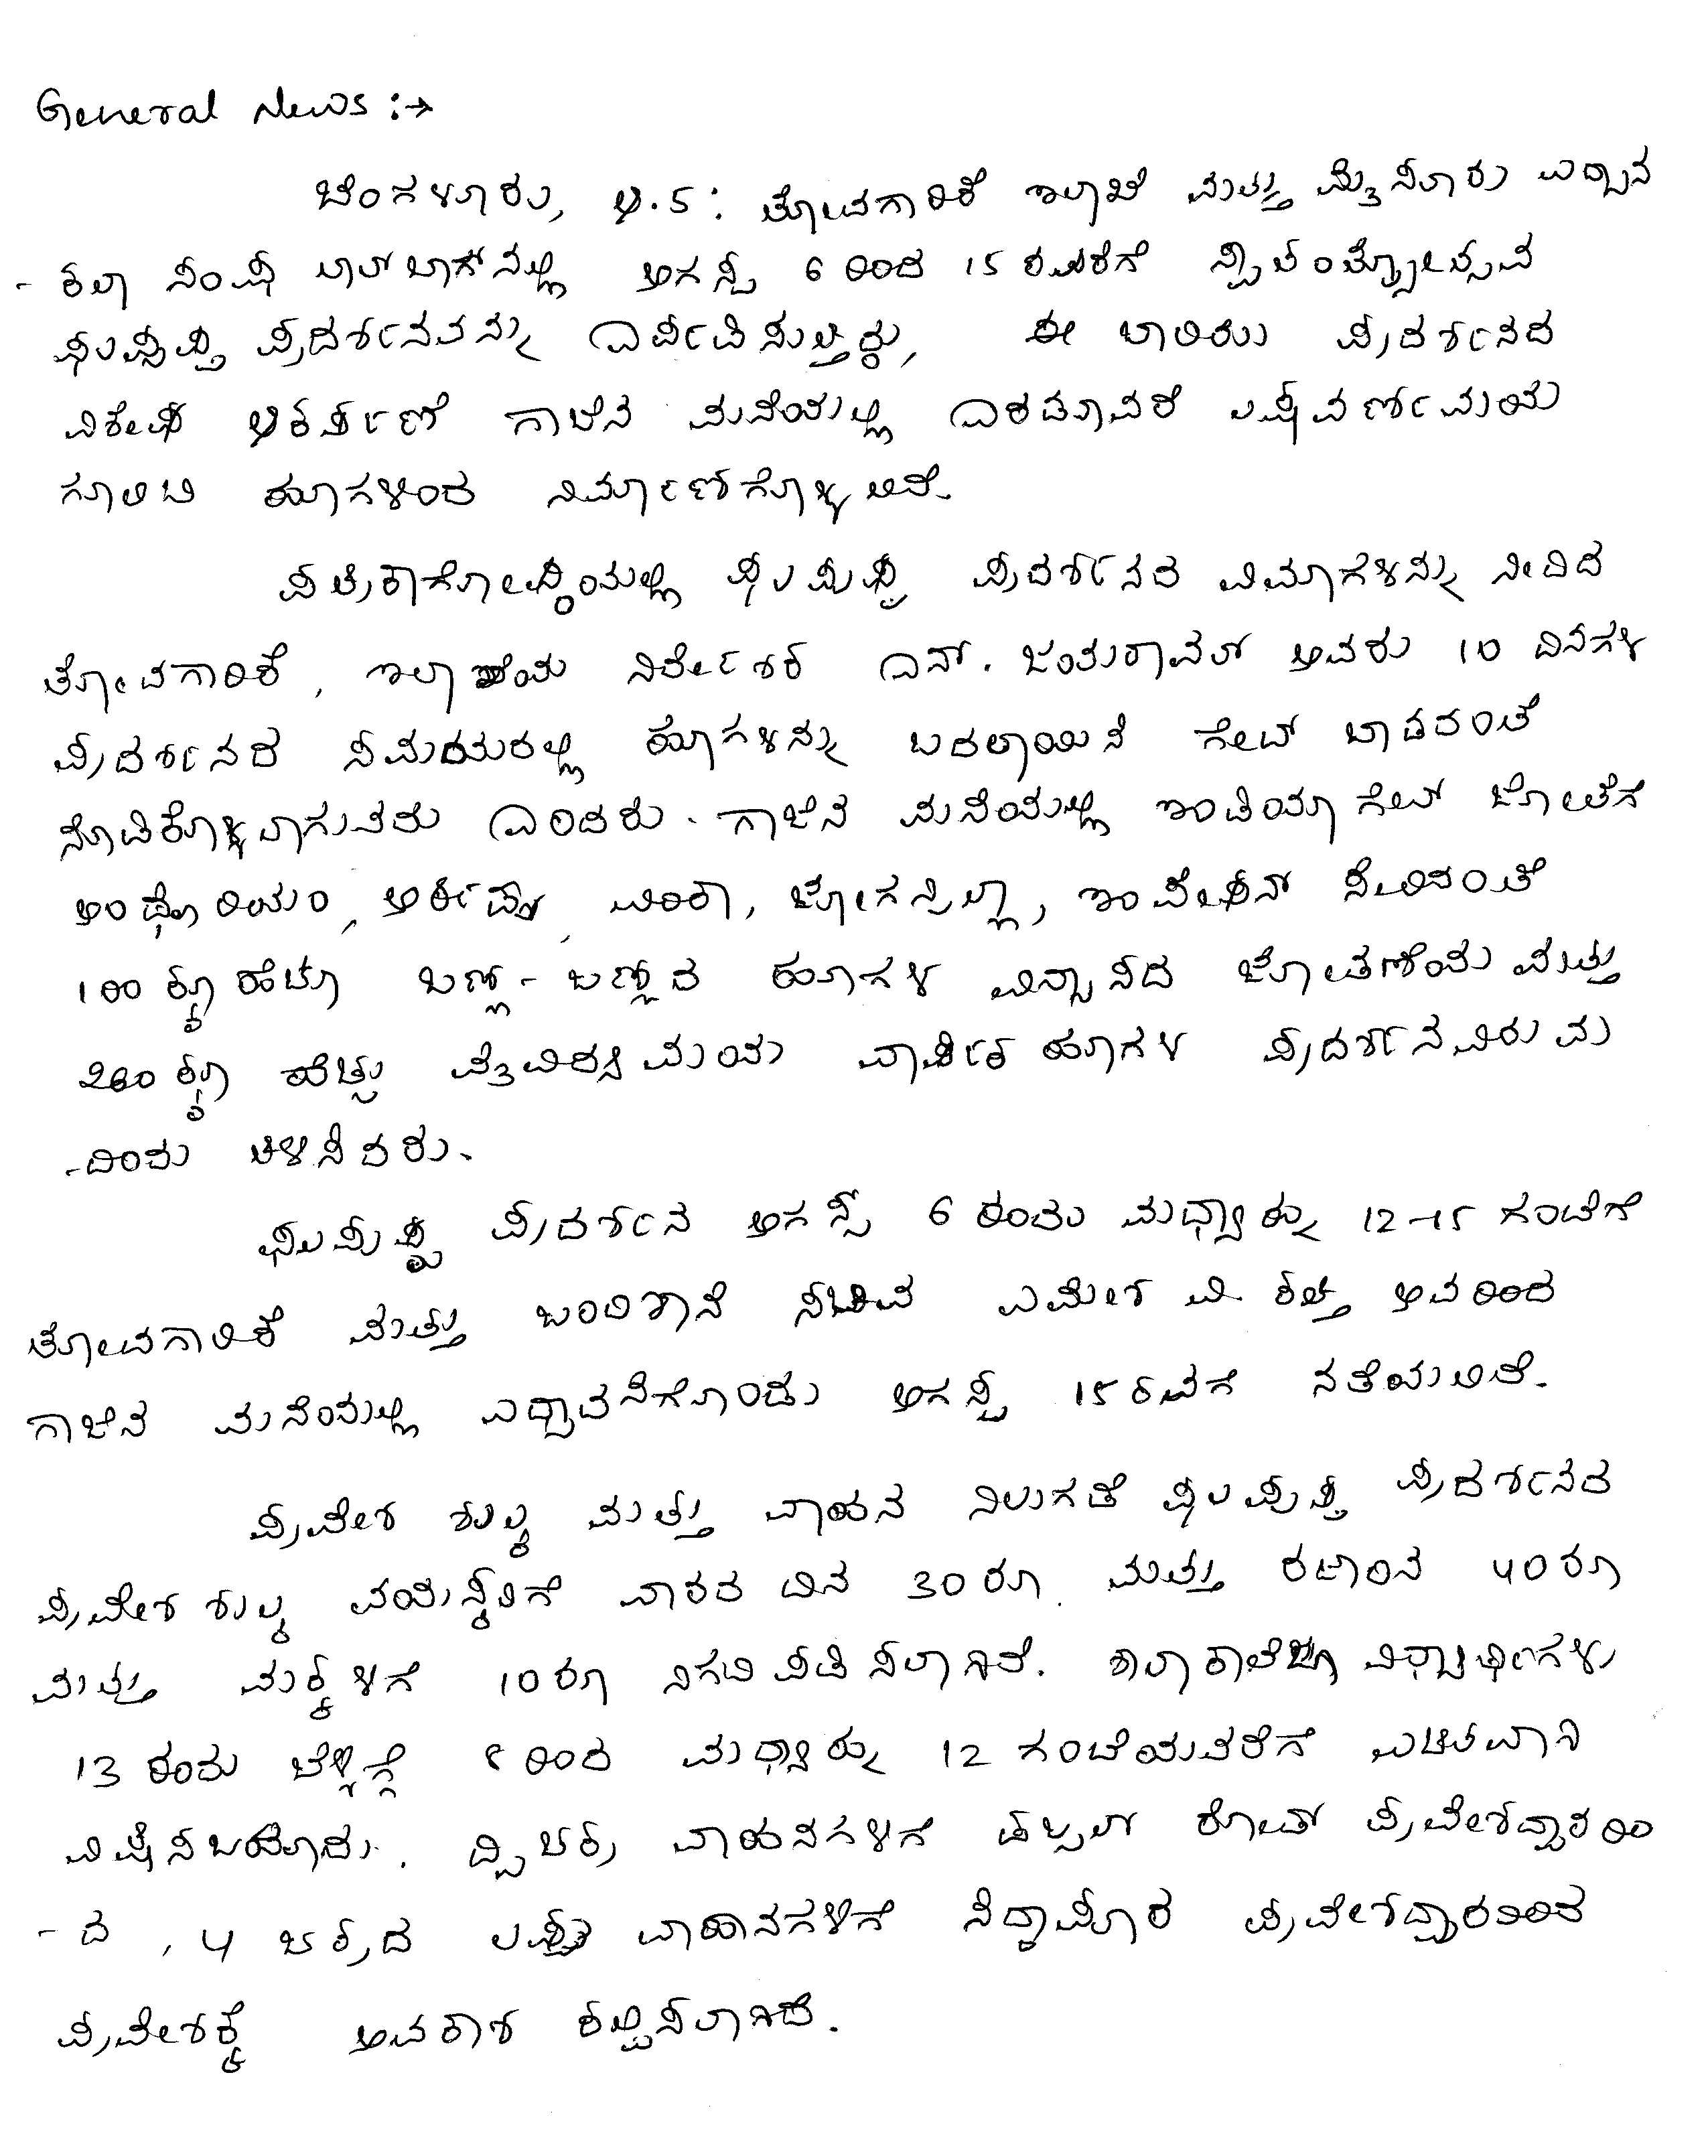 General News :→
ಬೆಂಗಳೂರು, ಆ.5: ತೋಟಗಾರಿಕೆ ಇಲಾಖೆ ಮತ್ತು ಮೈಸೂರು ಉದ್ಯಾನ
- ಕಲಾ ಸಂಘ ಲಾಲ್‌ಬಾಗ್‌ನಲ್ಲಿ ಆಗಸ್ಟ್ 6 ರಿಂದ 15 ರವರೆಗೆ ಸ್ವಾತಂತ್ರ್ಯೋತ್ಸವ
ಫಲಪುಷ್ಪ ಪ್ರದರ್ಶನವನ್ನು ಏರ್ಪಡಿಸುತ್ತಿದ್ದು, ಈ ಬಾರಿಯ ಪ್ರದರ್ಶನದ
ವಿಶೇಷ ಆಕರ್ಷಣೆ ಗಾಜಿನ ಮನೆಯಲ್ಲಿ ವರ್ಣಮಯ
ಗುಲಾಬಿ ಹೂಗಳಿಂದ ನಿರ್ಮಾಣಗೊಳ್ಳಲಿದೆ.
ಪತ್ರಿಕಾಗೋಷ್ಠಿಯಲ್ಲಿ ಫಲಪುಷ್ಪ ಪ್ರದರ್ಶನದ ವಿಭಾಗಗಳನ್ನು ನೀಡಿದ
ತೋಟಗಾರಿಕೆ, ಇಲಾಖೆಯ ನಿರ್ದೇಶಕ ಎನ್. ಜಯರಾಮ್ ಅವರು 10 ದಿನಗಳ
ಪ್ರದರ್ಶನದ ಸಮಯದಲ್ಲಿ ಹೂಗಳನ್ನು ಬದಲಾಯಿಸಿ ಗೇಟ್ ಬಾಡದಂತೆ
ನೋಡಿಕೊಳ್ಳಲಾಗುವುದು ಎಂದರು. ಗಾಜಿನ ಮನೆಯಲ್ಲಿ ಇಂಡಿಯಾ ಗೇಟ್ ಜೋತೆಗೆ
ಆಂಥೋರಿಯಂ, ಆರ್ಕಿಡ್ಸ್, ಇಂಪೇಷನ್ ಸೇರಿದಂತೆ
100 ಕ್ಕೂ ಹೆಚ್ಚು ಬಣ್ಣ-ಬಣ್ಣದ ಹೂಗಳ ವಿನ್ಯಾಸದ ಜೋಡಣೆಯು ಮತ್ತು
200 ಕ್ಕೂ ಹೆಚ್ಚು ವೈವಿಧ್ಯಮಯ ವಾರ್ಷಿಕ ಹೂಗಳ ಪ್ರದರ್ಶನವಿರುವು
-ದೆಂದು ತಿಳಿಸಿದರು.
ಫಲಪುಷ್ಪ ಪ್ರದರ್ಶನ ಆಗಸ್ಟ್ 6 ರಂದು ಮಧ್ಯಾಹ್ನ 12-15 ಗಂಟೆಗೆ
ತೋಟಗಾರಿಕೆ ಮತ್ತು ಬಂದಿಖಾನೆ ಸಚಿವ ಉಮೇಶ ವಿ. ಕತ್ತಿ ಅವರಿಂದ
ಗಾಜಿನ ಮನೆಯಲ್ಲಿ ಉದ್ಘಾಟನೆಗೊಂಡು ಆಗಸ್ಟ್ 15 ರವಗೆ ನಡೆಯಲಿದೆ.
ಪ್ರವೇಶ ಶುಲ್ಕ ಮತ್ತು ವಾಹನ ನಿಲುಗಡೆ ಫಲಪುಷ್ಪ ಪ್ರದರ್ಶನದ
ಪ್ರವೇಶ ಶುಲ್ಕ ವಯಸ್ಕರಿಗೆ ವಾರದ ದಿನ 30 ರೂ. ಮತ್ತು ರಜಾದಿನ 40 ರೂ
ಮತ್ತು ಮಕ್ಕಳಿಗೆ 10 ರೂ ನಿಗದಿ ಪಡಿಸಲಾಗಿದೆ. ಶಾಲಾ ಕಾಲೇಜು ವಿದ್ಯಾರ್ಥಿಗಳು
13 ರಂದು ಬೆಳ್ಳಿಗ್ಗೆ 8 ರಿಂದ ಮಧ್ಯಾಹ್ನ 12 ಗಂಟೆಯವರೆಗೆ ಉಚಿತವಾಗಿ
ವಿಕ್ಷಿಸಬಹುದು. ದ್ವಿಚಕ್ರ ವಾಹನಗಳಿಗೆ ಡಬ್ಬಲ್ ರೋಡ್ ಪ್ರವೇಶದ್ವಾರದಿಂ
- ದ, 4 ಚಕ್ರದ ವಾಹನಗಳಿಗೆ ಸಿದ್ದಾಪೂರ ಪ್ರವೇಶದ್ವಾರದಿಂದ
ಪ್ರವೇಶಕ್ಕೆ ಅವಕಾಶ ಕಲ್ಪಿಸಲಾಗಿದೆ.